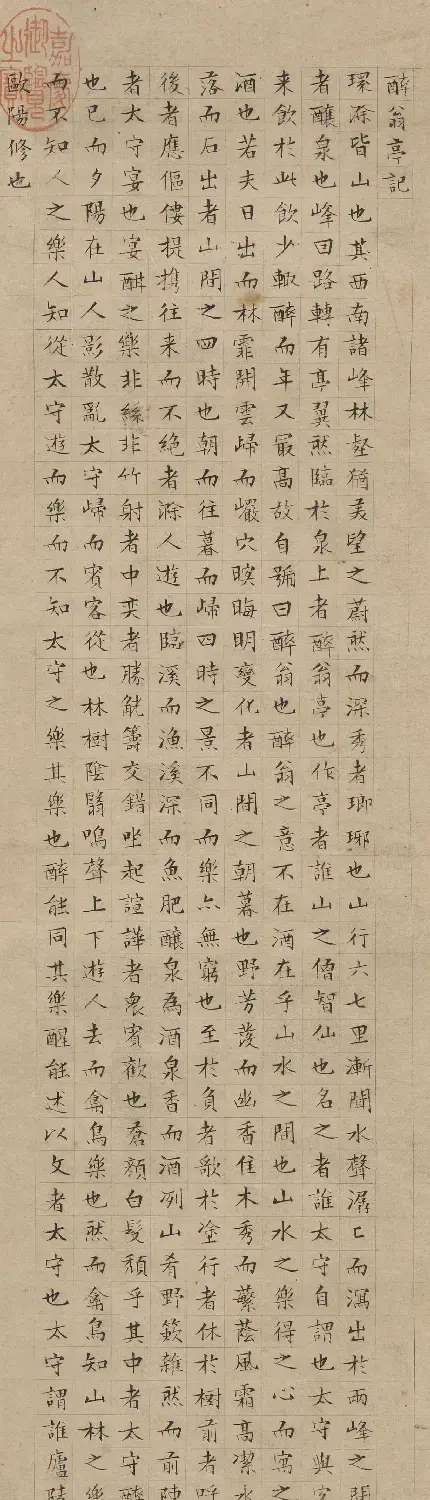 醉翁亭記
環滁皆山也其西南諸峰林壑猶美望之蔚然而深秀者瑯琊也山行六七里漸聞水聲潺〻而瀉出於兩峰之間
者釀泉也峰回路轉有亭翼然臨於泉上者醉翁亭也作亭者誰山之僧智仙也名之者誰太守自謂也太守與客
来飲於此飲少輒醉而年又最高故自號曰醉翁也醉翁之意不在酒在乎山水之間也山水之樂得之心而寓之
酒也若夫日出而林霏開雲歸而巖穴暝晦明變化者山間之朝暮也野芳發而幽香佳木秀而蘩蔭風霜高潔水
落而石出者山間之四時也朝而往暮而歸四時之景不同而樂亦無窮也至於負者歌於塗行者休於樹前者呼
後者應傴僂提攜往来而不絶者滁人遊也臨溪而漁溪深而魚肥釀泉為酒泉香而酒冽山肴野簌雜然而前陳
者太守宴也宴酣之樂非絲非竹射者中奕者勝觥籌交錯坐起諠譁者衆賓歡也蒼顏白髮頹乎其中者太守醉
也已而夕陽在山人影散亂太守歸而賓客從也林樹陰翳鳴聲上下遊人去而禽鳥樂也然而禽鳥知山林之樂
而不知人之樂人知從太守遊而樂而不知太守之樂其樂也醉能同其樂醒能述以文者太守也太守謂誰廬陵
歐陽修也